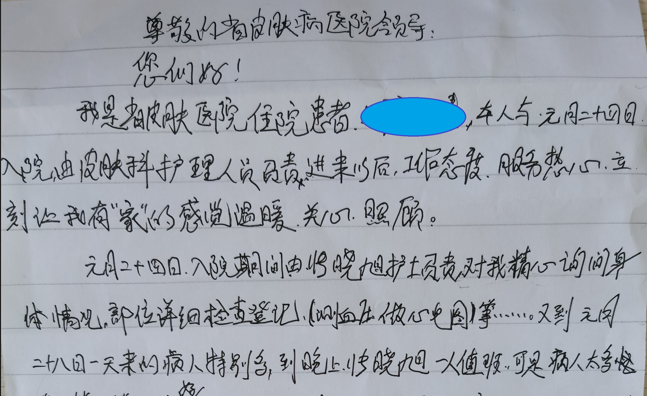 尊敬的省皮肤病医院领导:
您们好!
我是省皮肤医院住院患者, 本人与元月二十四日
入院,由皮肤科护理人员负责,进来以后,工作态度、服务热心、立
刻让我有“家”的感觉温暖、关心、照顾。
元月二十四日.入院期间由晓旭护士负责,对我精心询问身
体情况,部位详细检查登记、(测血压做心电图)等……又到元月
二十八日一天来的病人特别多,到晚上晓旭一人值班.可是病人太多